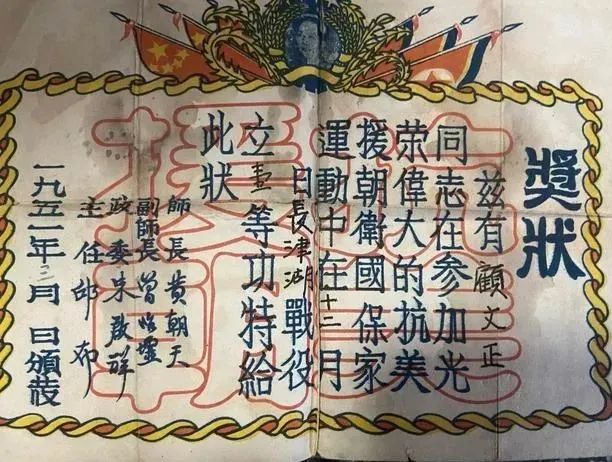 獎狀
兹有顧文正
同志在参加光
荣偉大的抗美
援朝衛國保家
運動中在十二月
日長津湖戰役
立壹等功特給
此狀
師長黄朝天
副師長曾
政委朱啟祥
主任邱布
一九五一年三月 日頒發